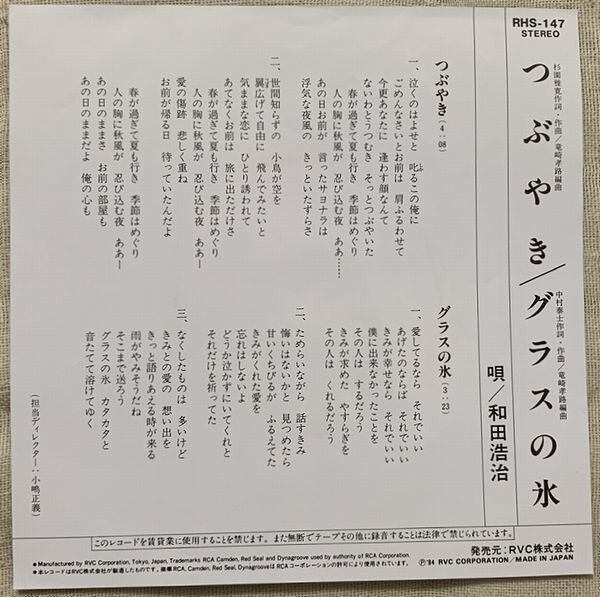 RHS-147
STEREO
杉園雅寛作詞・作曲/竜崎孝路編曲
つぶやき/グラスの氷
中村泰士作詞・作曲/竜崎孝路編曲
唄/和田浩治
つぶやき(4:08)
一、泣くのはよせと 叱るこの俺に
ごめんなさいとお前は 肩ふるわせて
今更あなたに 逢わす顔なんて
ないわとうつむき そっとつぶやいた
春が過ぎて夏も行き 季節はめぐり
人の胸に秋風が 忍び込む夜 ああ……
あの日お前が 言ったサヨナラは
浮気な夜風の きっといたずらさ
二、世間知らずの 小鳥が空を
翼広げて自由に 飛んでみたいと
気ままな恋に ひとり誘われて
あてなくお前は 旅に出ただけさ
春が過ぎて夏も行き 季節はめぐり
人の胸に秋風が 忍び込む夜 ああー
愛の傷跡 悲しく重ね
お前が帰る日 待っていたんだよ
春が過ぎて夏も行き 季節はめぐり
人の胸に秋風が 忍び込む夜 ああー
あの日のままさ お前の部屋も
あの日のままだよ 俺の心も
グラスの氷(3:23)
一、愛してるなら それでいい
あげたのならば それでいい
きみが幸せなら それでいい
僕に出来なかったことを
その人は するだろう
きみが求めた やすらぎを
その人は くれるだろう
二、ためらいながら 話すきみ
悔いはないかと 見つめたら
甘いくちびるが ふるえてた
きみがくれた愛を
忘れはしないよ
どうか泣かずにいてくれと
それだけを祈ってた
三、なくしたものは 多いけど
きみとの愛の 想い出を
きっと語りあえる時が来る
雨がやみそうだね
そこまで送ろう
グラスの氷 カタカタと
音たてて溶けてゆく
(担当ディレクター:小嶋正義)
このレコードを賃貸業に使用することを禁じます。また無断でテープその他に録音することは法律で禁じられています。
発売元:RVC株式会社
●Manufactured by RVC Corporation, Tokyo, Japan, Trademarks RCA Camden, Red Seal and Dynagroove used by authority of RCA Corporation.
●本レコードはRVC株式会社が製造したものです。商標RCA, Camden, Red Seal, DynagrooveはRCAコーポレーションの許可により使用されています。
Ⓟ'84 RVC CORPORATION/MADE IN JAPAN